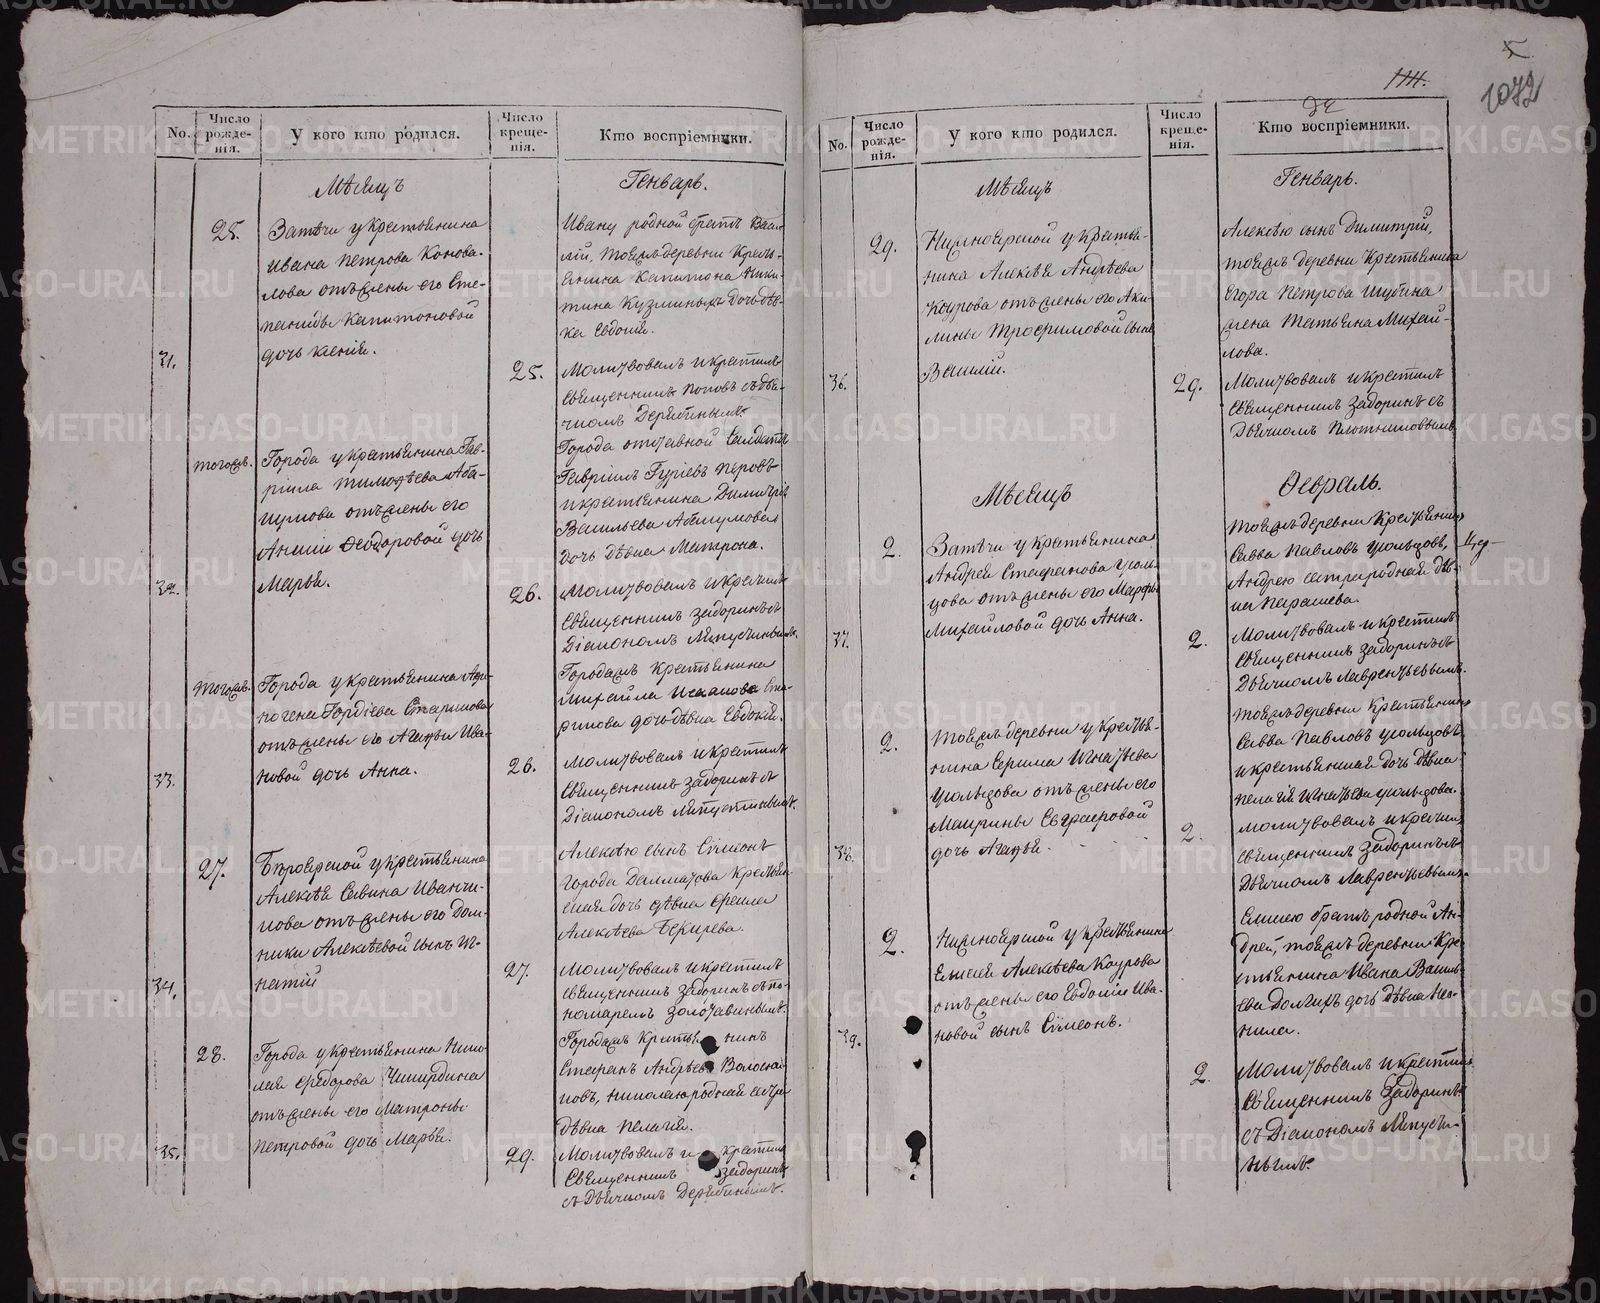 114.
1072
No.
Число рожде-нія.
У кого кто родился.
Число креще-нія.
Кто воспріемники.
Мѣсяцъ
Генварь.
25.
Затечи у крестьянина
Ивана Петрова Конова-
лова отъ жены его Сте-
паниды Капитоновой
дочь Ксенія.
31.
Ивану родной братъ Васи-
лій, тояжъ деревни Кресть-
янина Капитона Ники-
тина Кузминыхъ дочь дѣв-
ка Евдокія.
25.
Молитвовалъ и крестилъ
Священникъ Поповъ съ дья-
чкомъ Дерябинымъ.
тогожъ.
Города у крестьянина Гав-
ріила Тимофѣева Аба-
шумова отъ жены его
Анисіи Ѳеодоровой дочь
Марья.
32.
Города отставной Салдатъ
Гавріилъ Гуріевъ Перовъ
и крестьянина Димитрія
Васильева Абашумова
дочь дѣвка Матрона.
26.
Молитвовалъ и крестилъ
Священникъ Задоринъ съ
Діакономъ
тогожъ.
Города у крестьянина
Гордіева Старикова
отъ жены его Агафьи Ива-
новой дочь Анна.
33.
Городажъ Крестьянина
Михайла Исакова Ста-
рикова дочь дѣвка Евдокія.
26.
Молитвовалъ и крестилъ
Священникъ Задоринъ съ
Діакономъ
27.
у крестьянина
Алексѣя Савина Иванчи-
кова отъ жены его Дом-
ники Алексѣевой сынъ Иг-
натій
34.
Алексѣю сынъ Сімеонъ
города Далматова Крестьян-
ская дочь дѣвка Ѳекла
Алексѣева
27.
Молитвовалъ и крестилъ
Священникъ Задоринъ съ по-
номаремъ Золотавинымъ.
28.
Города у Крестьянина Нико-
лая Ѳедорова Чиширдина
отъ жены его Матроны
Петровой дочь Марья.
35.
Городажъ Крестьянинъ
Стефанъ Андрѣевъ
Николаю родная сестра
дѣвка Пелагія.
29.
Молитвовалъ и крестилъ
Священникъ Задоринъ
съ Дьячкомъ Дерябинымъ.
No.
Число рожде-нія.
У кого кто родился.
Число креще-нія.
Кто воспріемники.
Мѣсяцъ
Генварь.
29.
Нижноярской у Крестья-
нина Алексѣя Андрѣева
Коурова отъ жены его Аки-
лины Трофимовой сынъ
Василій.
36.
Алексѣю сынъ Димитрій,
тояжъ деревни Крестьянина
Егора Петрова Шубина
жена Татьяна Михай-
лова.
29.
Молитвовалъ и крестилъ
Священникъ Задоринъ съ
Дьячкомъ Плотниковымъ
Мѣсяцъ
Февраль.
2.
Затечи у крестьянина
Андрея Стефанова Уголь-
цова отъ жены его Марфы
Михайловой дочь Анна.
37.
Тояжъ деревни Крестьянинъ
Савва Павловъ Угольцовъ,
Андрею сестра родная дѣв-
ка Парасева.
2.
Молитвовалъ и крестилъ
Священникъ Задоринъ съ
Дьячкомъ Лаврентьевымъ.
2.
Тояжъ деревни у Крестья-
нина Ігнатьева
Угольцова отъ жены его
Маирины Евграфовой
дочь Агафья.
38.
Тояжъ деревни Крестьянинъ
Савва Павловъ Угольцовъ
и крестьянская дочь дѣвка
Пелагія Игнатьева Угольцова.
2.
Молитвовалъ и крестилъ
Священникъ Задоринъ съ
Дьячкомъ Лаврентьевымъ.
2.
Нижноярской у Крестьянина
Елисея Алексѣева Коурова
отъ жены его Евдокіи Ива-
новой сынъ Сімеонъ.
39.
Елисею братъ родной Ан-
дрей, тояжъ деревни Кре-
стьянина Ивана Василь-
ева Долгихъ дочь дѣвка Нео-
нила.
2.
Молитвовалъ и крестилъ
Священникъ Задоринъ
съ Діакономъ